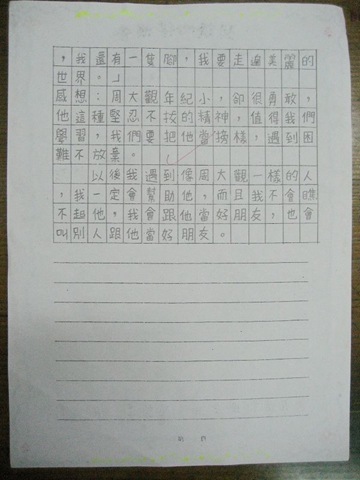 ，我還有一隻腳，我要走遍美麗的
世界。」
感想：周大觀年紀小，卻很勇敢，
他這種堅忍不拔的精神，值得我們
學習，我們要把他當榜樣，遇到困
難不放棄。
以後我遇到像周大觀一樣的人
，我一定會幫助他，而且我不會瞧
不起他，我會跟他當好朋友，也會
叫別人跟他當好朋友。